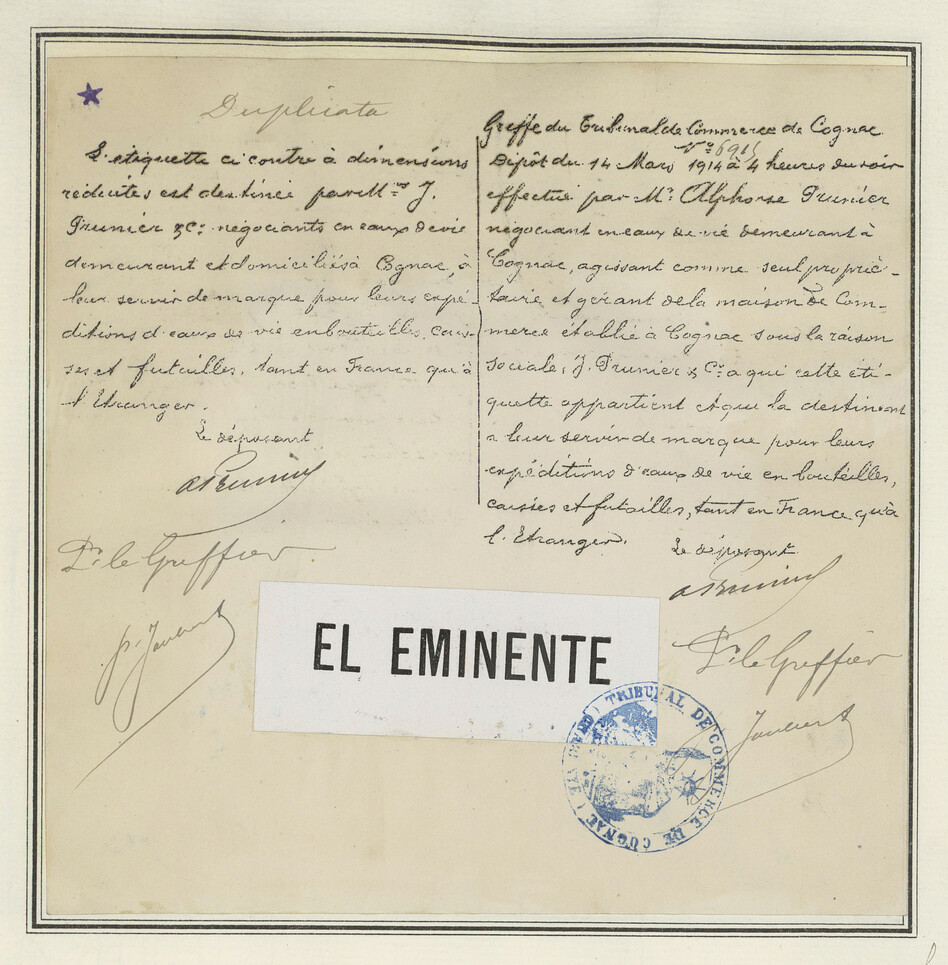 Duplicata
L'étiquette ci contre à dimensions
réduites est destinée par MM. J.
Prunier & Cie négociants en eaux de vie
demeurant et domiciliés à Cognac, à
leur servir de marque pour leurs expé-
ditions d'eaux de vie en bouteilles, cais-
ses et futailles, tant en France qu'à
l'Etranger.
Le déposant
A Prunier
Pr. le Greffier
Greffe du Tribunal de Commerce de Cognac
Dépôt du 14 Mars 1914 à 4 heures du soir
effectué par Mr. Alphonse Prunier
négociant en eaux de vie demeurant à
Cognac, agissant comme seul proprié-
taire et gérant de la maison de Com-
merce établie à Cognac sous la raison
sociale; J. Prunier & Cie a qui cette éti-
quette appartient et qui la destinent
a leur servir de marque pour leurs
expéditions d'eaux de vie en bouteilles,
caisses et futailles, tant en France qu'à
l'Etranger.
Le déposant
A Prunier
Pr. le Greffier
EL EMINENTE
TRIBUNAL DE COMMERCE DE COGNAC